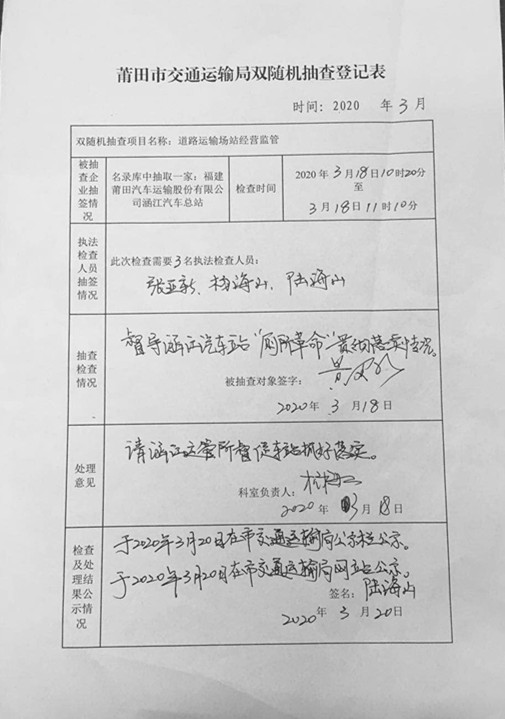 莆田市交通运输局双随机抽查登记表
时间：2020 年 3 月
双随机抽查项目名称：道路运输场站经营监管
被抽
查企
业抽
签情
况
名录库中抽取一家：福建
莆田汽车运输股份有限公
司涵江汽车总站
检查时间
2020 年 3 月 18 日 10 时 20 分
至
3 月 18 日 11 时 10 分
执法
检查
人员
抽签
情况
此次检查需要 3 名执法检查人员：
张亚新、杨海山、陆海山
抽查
检查
情况
督导涵江汽车站“厕所革命”贯彻落实情况。
被抽查对象签字：
2020 年 3 月 18 日
处理
意见
请涵江运管所督促车站抓好落实。
科室负责人：
2020 年 3 月 18 日
检查
及处
理结
果公
示情
况
于2020年3月20日在市交通运输局公示栏公示。
于2020年3月20日在市交通运输局网站公示。
签名：陆海山
2020 年 3 月 20 日